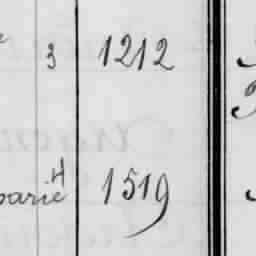 3 1212
H
parie 1519